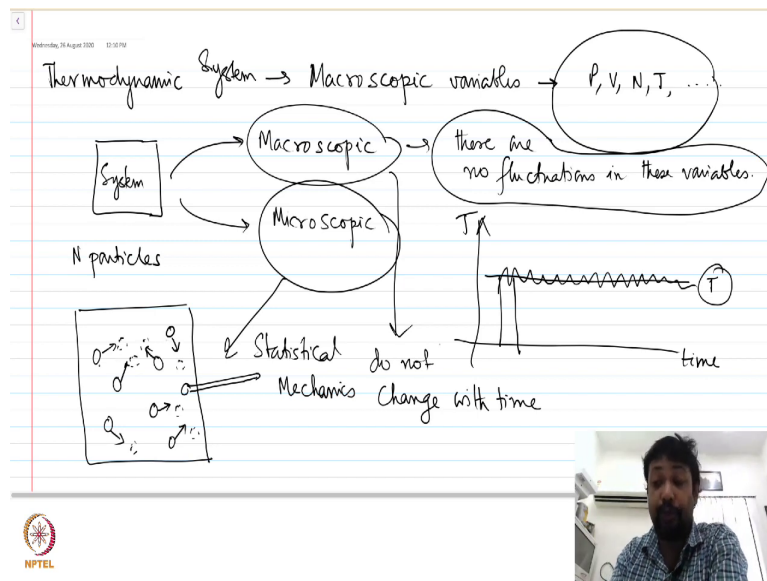 Wednesday, 26 August 2020 12:10 PM
Thermodynamic System → Macroscopic variables → P, V, N, T, .....
System
Macroscopic → there are
no fluctuations in these variables.
Microscopic
N particles
T
T
time
Statistical
Mechanics
do not
change with time
NPTEL